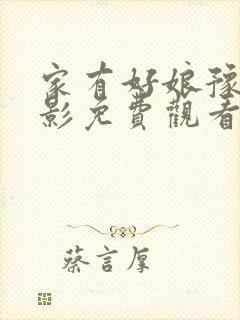 家有好娘豫
影免費觀看
蔡言厚